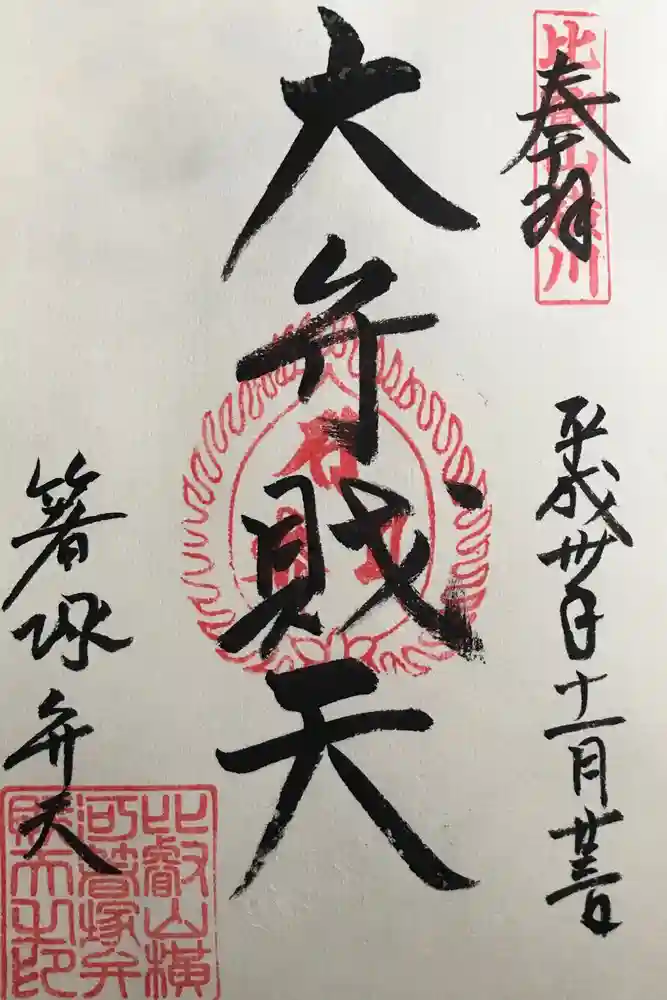 奉拝
比叡山横川
平成卅年十一月廿三日
大弁財天
箸塚弁天
比叡山横
河箸塚弁
財天之印